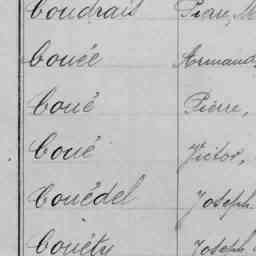 Coudrais Pierre, M
Couée Armand,
Coué Pierre,
Coué Victor,
Couëdel Joseph
Couëty Joseph